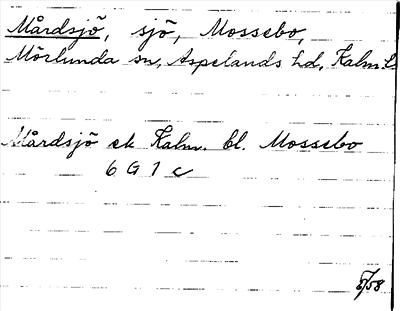 Mårdsjö, sjö, Mossebo,
Mörlunda sn, Aspelands hd, Kalm. l.
Mårdsjö ek Kalm. bl. Mossebo
6 G 1 c